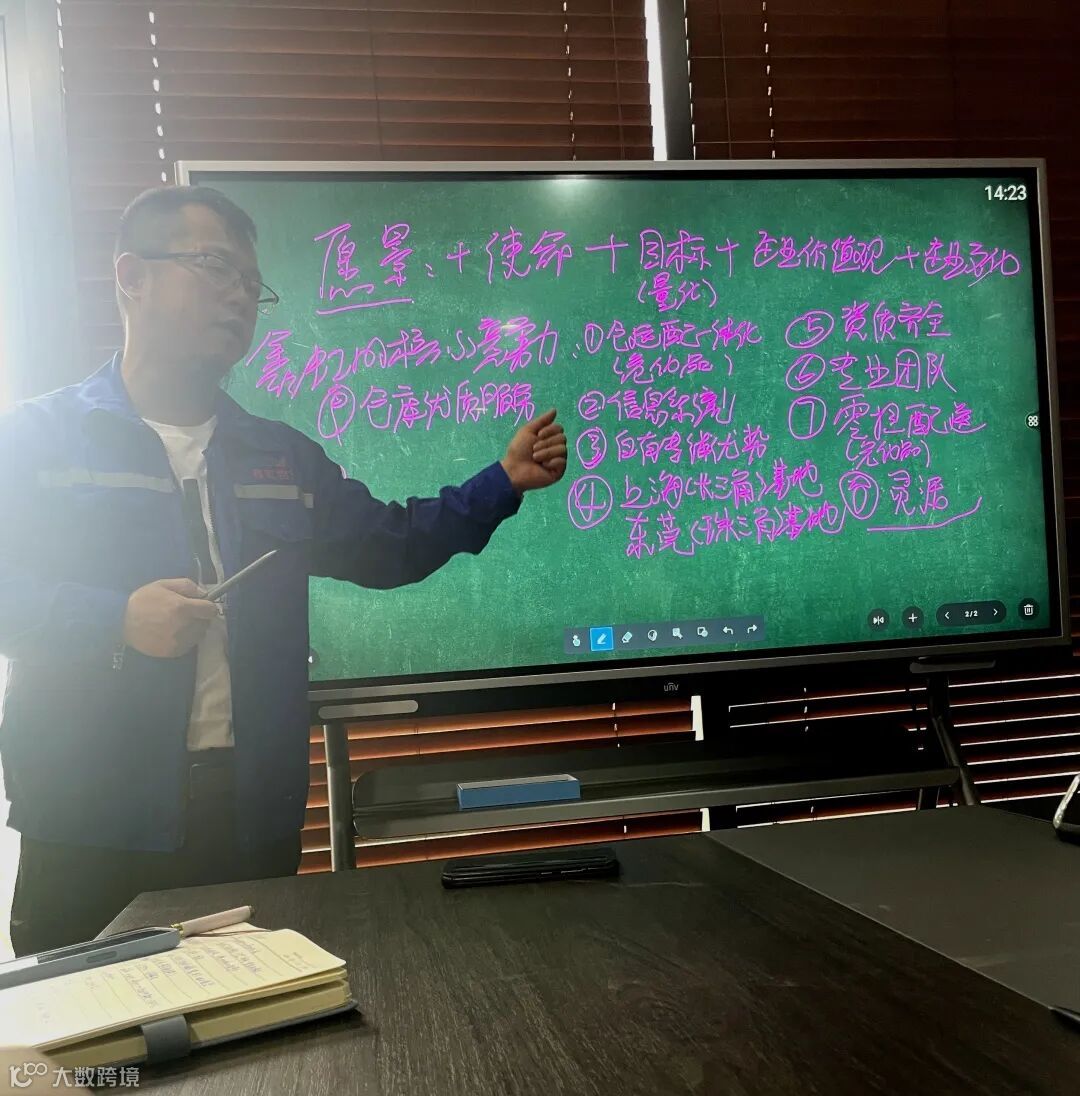 14:23
愿景:+使命+目标+企业价值观+企业文化
(量化)
鑫虹的核心竞争力:①仓运配一体化
(危化品)
②信息系统化
③自有车辆优势
④上海(长三角)基地
东莞(珠三角)基地
⑤资质齐全
⑥专业团队
⑦零担配送
(危化品)
⑧灵活
⑨仓库优质服务
2/2
unv
大数跨境